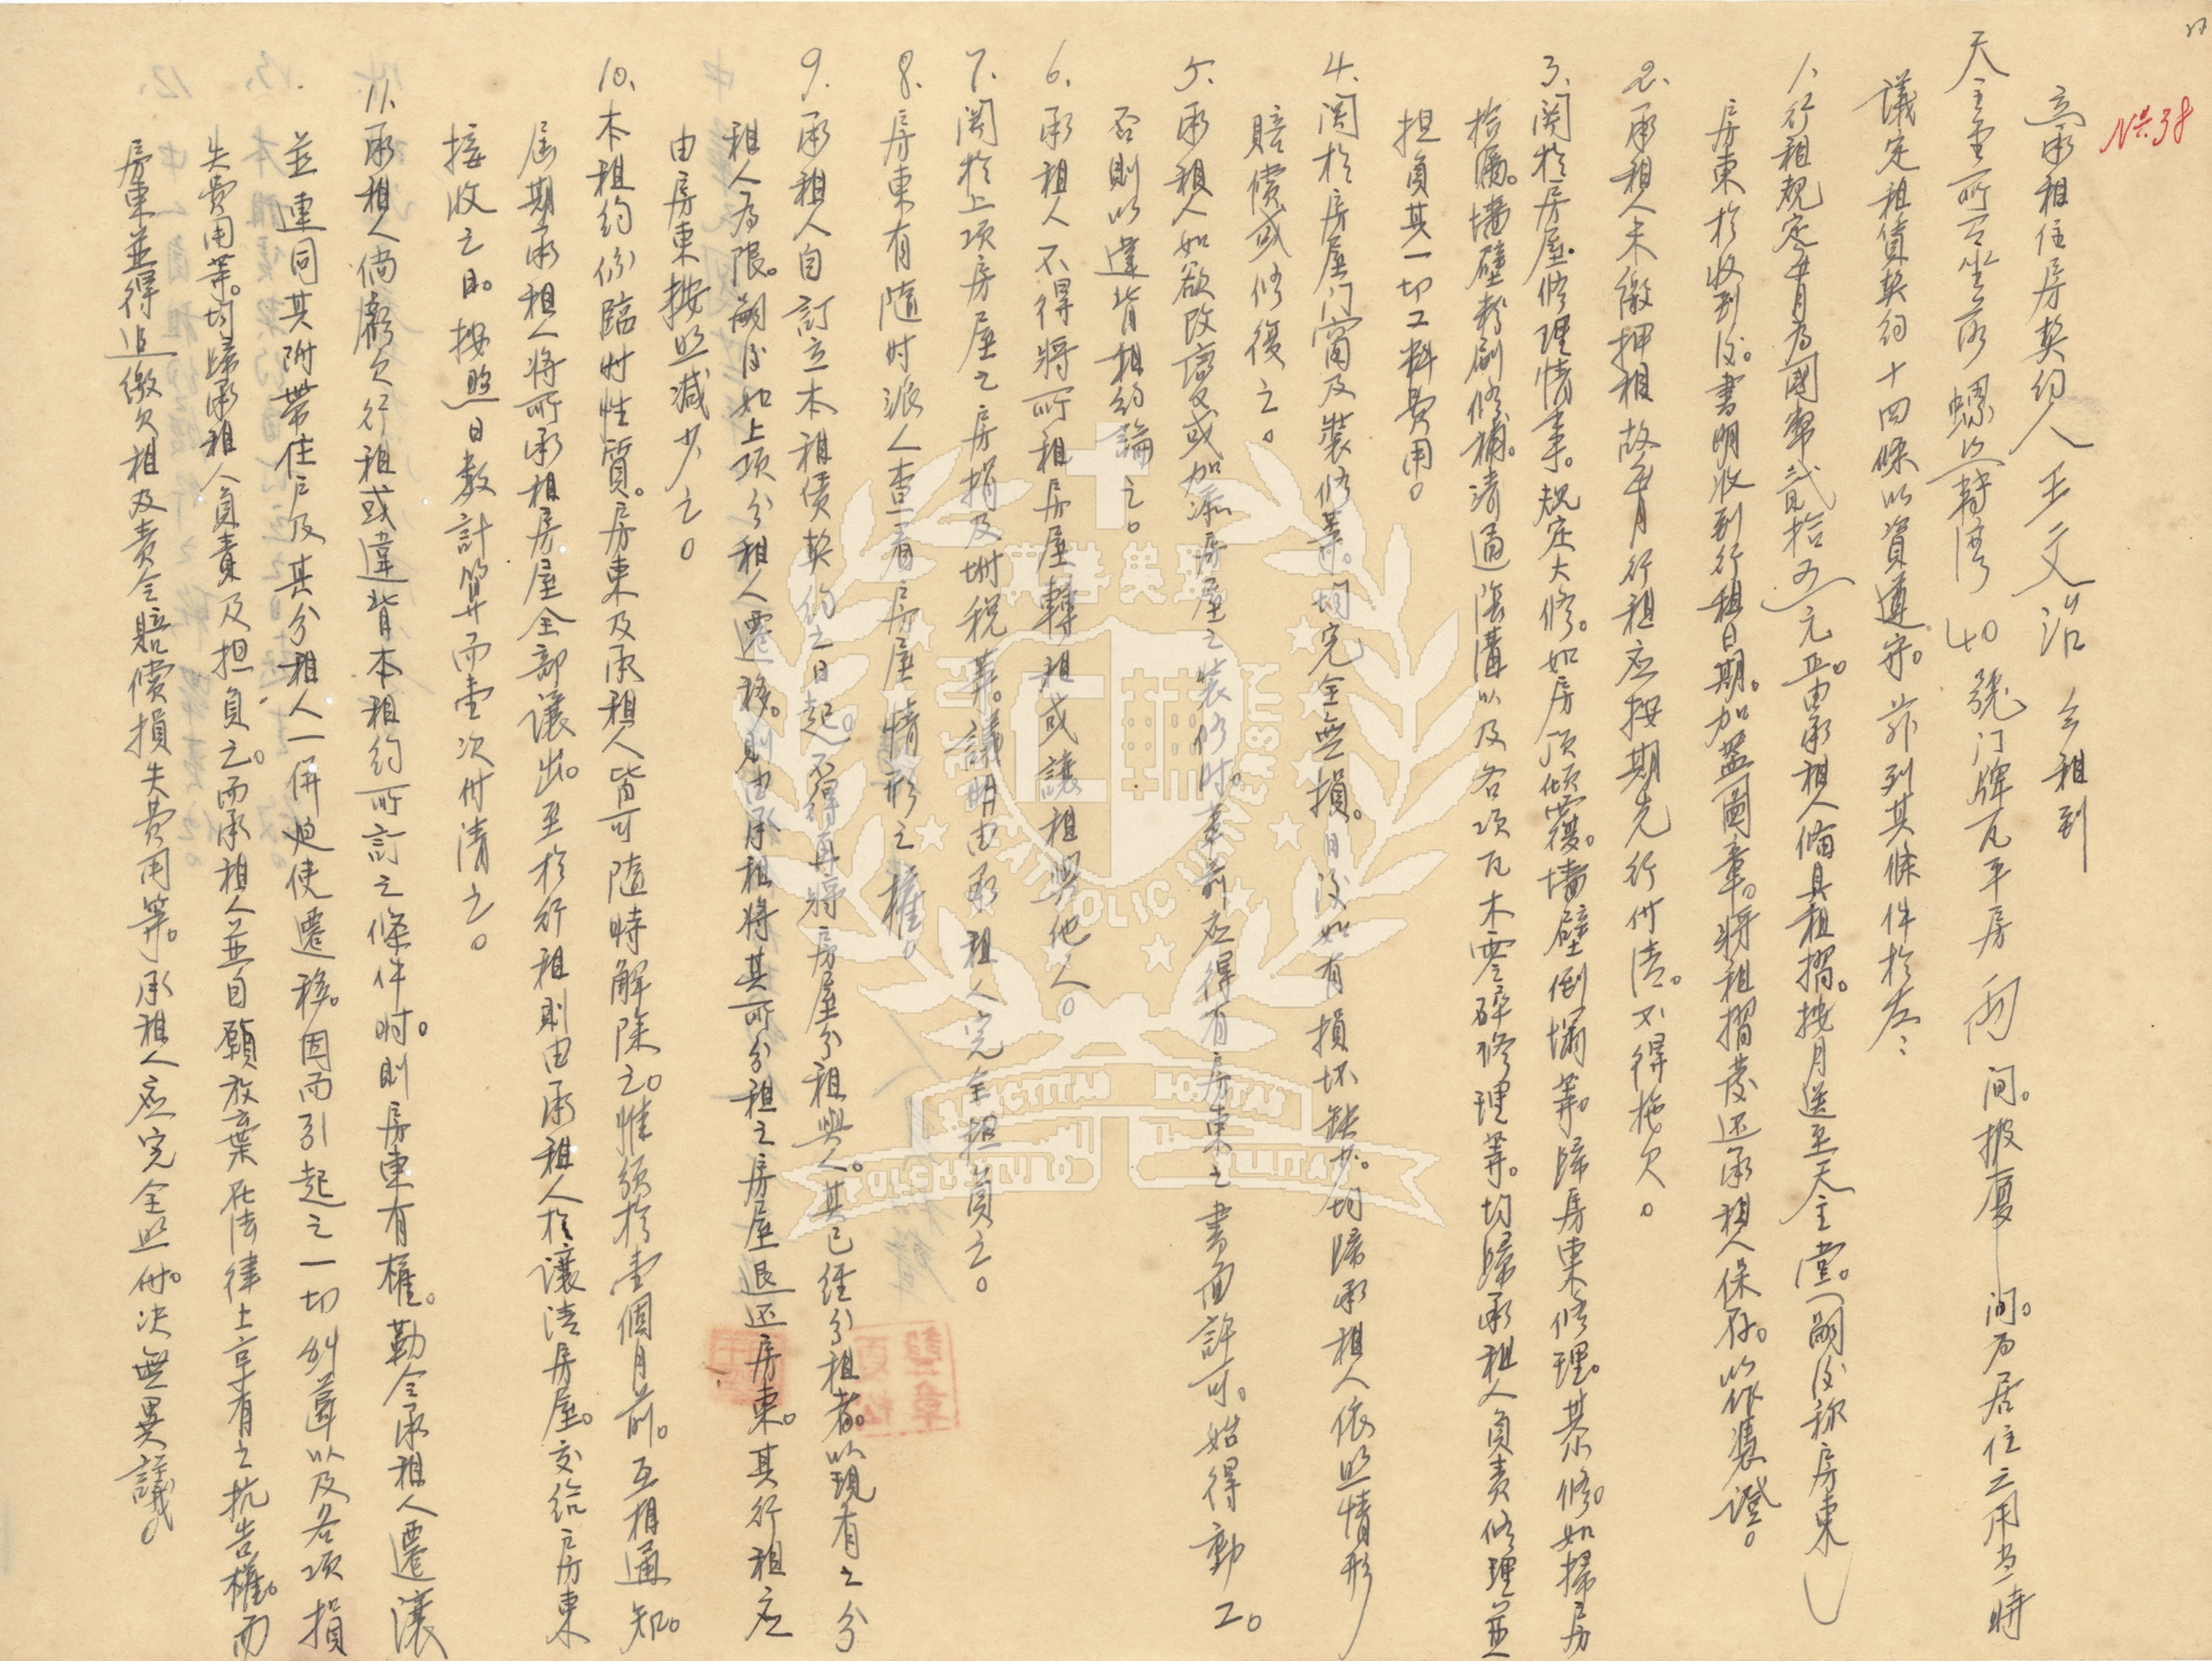 No. 38
立承租住房契約人王文治 今租到
天主堂所有坐落螺絲轉灣40號门牌瓦平房兩間。披厦一间。为居住之用当時
議定租賃契約十四條以資遵守。茲列其條件於左：
1. 行租規定每月為國幣貳拾元正。由承租人備具租摺。按月送至天主堂。（嗣後称房東）
房東於收到後。書明收到行租日期。加蓋圖章。將租摺發还承租人保存。以作憑證。
2. 承租人未繳押租故每月行租应按期先行付清。不得拖欠。
3. 関於房屋修理情事。規定大修。如房顶傾覆。墻壁倒塌等。歸房東修理。其小修。如掃房
拾漏。墻壁粉刷修補。清通陰溝以及各项瓦木零碎修理等。均歸承租人負责修理並
担負其一切工料費用。
4. 関於房屋门窗及裝修等。均完全無損。日後如有損坏缺少。均歸承租人依照情形
賠償或修復之。
5. 承租人如欲改變或加添房屋之裝修时。事前应得有房東之書面許可。始得動工。
否則以違背租約論之。
6. 承租人不得將所租房屋轉租或讓租與他人。
7. 関於上项房屋之房捐及附税等。議明由承租人完全担負之。
8. 房東有隨时派人查看房屋情形之權。
9. 承租人自訂立本租賃契約之日起。不得再將房屋分租與人。其已經分租者。以現有之分
租人為限。嗣後如上项分租人遷移。則由承租將其所分租之房屋退还房東。其行租应
由房東按照減少之。
10. 本租約係臨时性質。房東及承租人皆可隨時解除之。惟須於壹個月前。互相通知。
屆期承租人將所承租房屋全部讓出。至於行租則由承租人於讓清房屋。交給房東
接收之日。按照日數計算而壹次付清之。
11. 承租人倘虧欠行租或違背本租約所訂之條件时。則房東有權。勒令承租人遷讓
並連同其附帶住户及其分租人一併迫使遷移。因而引起之一切糾葛以及各项損
失費用等。均歸承租人負責及担負之。而承租人並自願放棄在法律上享有之抗告權。而
房東並得追繳欠租及責令賠償損失費用等。承租人应完全照付。决無異議。